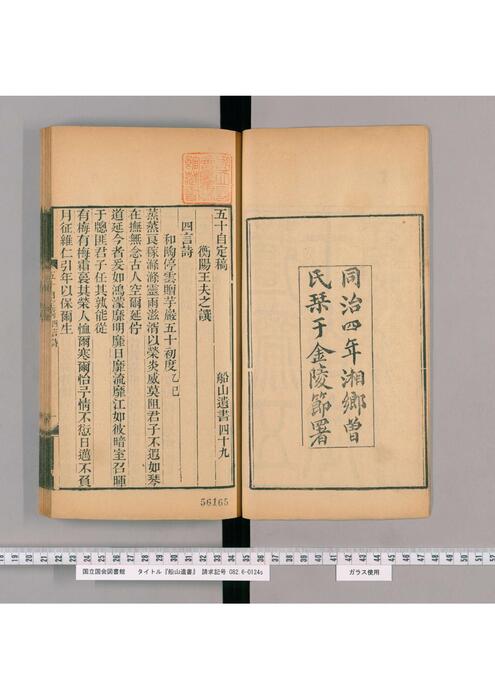 同治四年湘鄉曾
氏栞于金陵節署
五十自定稿 船山遺書四十九
衡陽王夫之譔
四言詩
和陶停雲贈芋巖五十初度 乙巳
蒸蒸良稼滌滌靈雨滋湑以榮炎威莫阻君子不遐如琴
在撫無念古人空爾延佇
道延今者爰如鴻濛靡明靡日靡流靡江如彼暗室召晦
于牕匪君子任其孰能從
有梅有梅霜裛其榮人恤爾寒爾怡予情不愆日邁不負
月征維仁引年以保爾生
56165
国立国会図書館 タイトル『船山遺書』 請求記号 082.6-0124s
ガラス使用